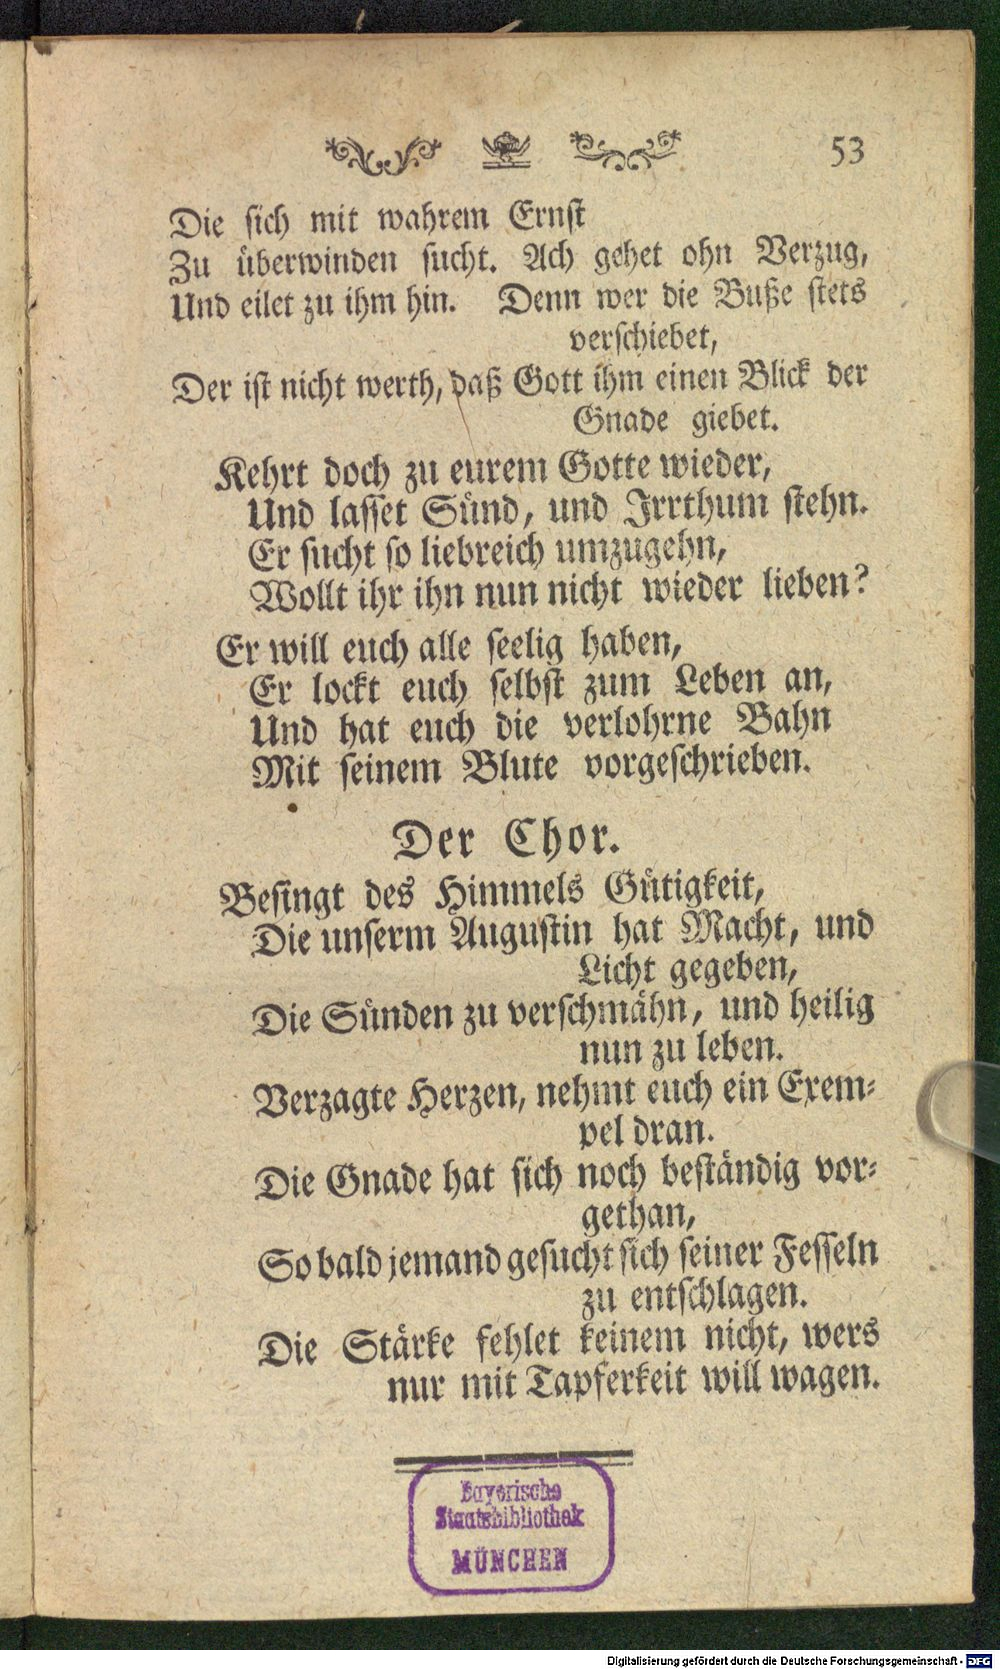 53
Die sich mit wahrem Ernst
Zu überwinden sucht. Ach gehet ohn Verzug,
Und eilet zu ihm hin. Denn wer die Buße stets
verschiebet,
Der ist nicht werth, daß Gott ihm einen Blick der
Gnade giebet.
Kehrt doch zu eurem Gotte wieder,
Und lasset Sünd, und Irrthum stehn.
Er sucht so liebreich umzugehn,
Wollt ihr ihn nun nicht wieder lieben?
Er will euch alle seelig haben,
Er lockt euch selbst zum Leben an,
Und hat euch die verlohrne Bahn
Mit seinem Blute vorgeschrieben.
Der Chor.
Besingt des Himmels Gütigkeit,
Die unserm Augustin hat Macht, und
Licht gegeben,
Die Sünden zu verschmähn, und heilig
nun zu leben.
Verzagte Herzen, nehmt euch ein Exem-
pel dran.
Die Gnade hat sich noch beständig vor-
gethan,
So bald jemand gesucht sich seiner Fesseln
zu entschlagen.
Die Stärke fehlet keinem nicht, wers
nur mit Tapferkeit will wagen.
Bayerische
Staatsbibliothek
MÜNCHEN
Digitalisierung gefördert durch die Deutsche Forschungsgemeinschaft - DFG